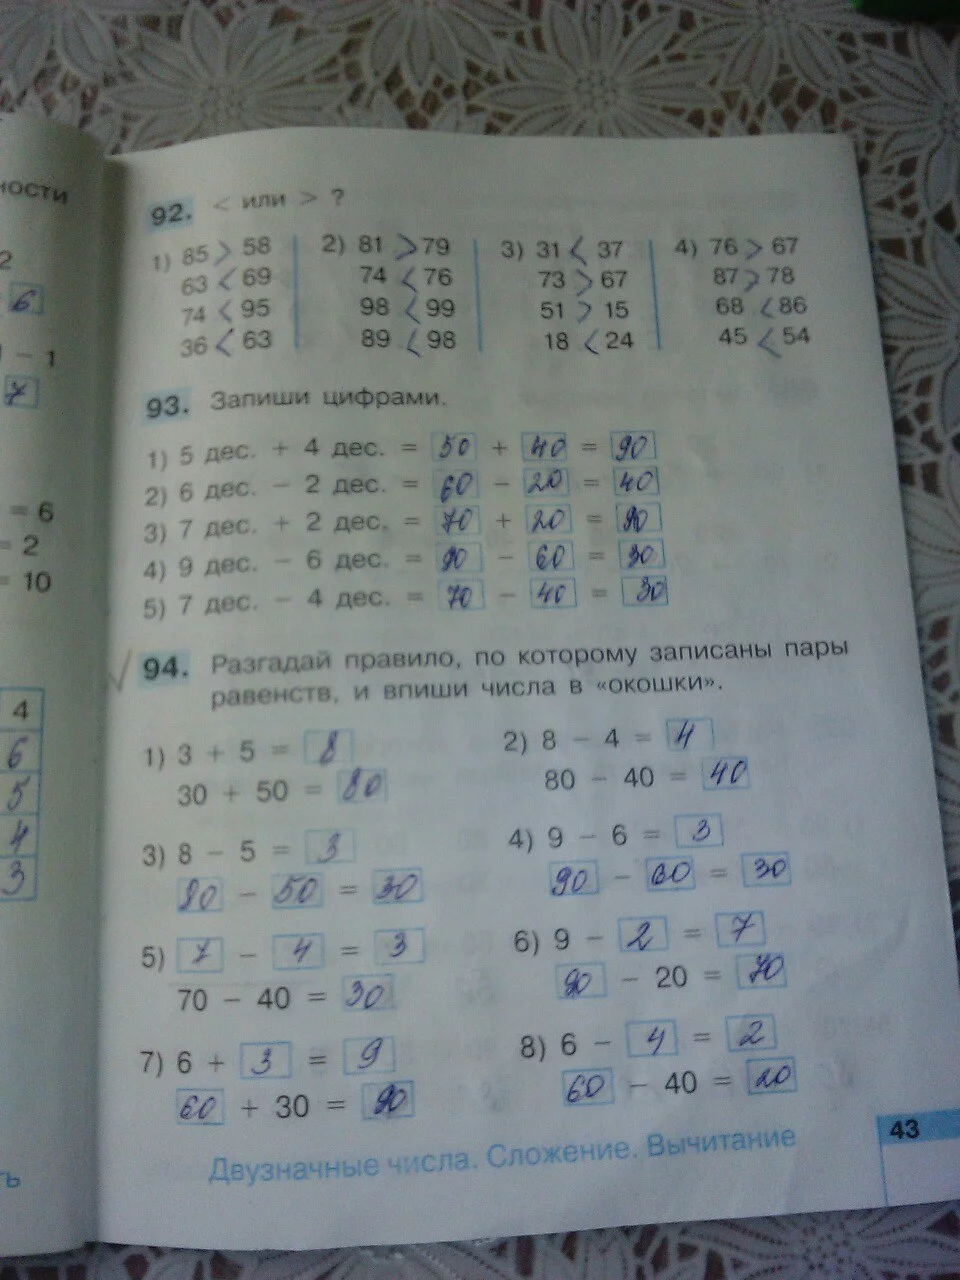 ности
2
6
- 1
7
= 6
= 2
= 10
4
6
5
4
3
ть
92. < или > ?
1) 85 > 58
63 < 69
74 < 95
36 < 63
2) 81 > 79
74 < 76
98 < 99
89 < 98
3) 31 < 37
73 > 67
51 > 15
18 < 24
4) 76 > 67
87 > 78
68 < 86
45 < 54
93. Запиши цифрами.
1) 5 дес. + 4 дес. = 50 + 40 = 90
2) 6 дес. − 2 дес. = 60 − 20 = 40
3) 7 дес. + 2 дес. = 70 + 20 = 90
4) 9 дес. − 6 дес. = 90 − 60 = 30
5) 7 дес. − 4 дес. = 70 − 40 = 30
94. Разгадай правило, по которому записаны пары
равенств, и впиши числа в «окошки».
1) 3 + 5 = 8
30 + 50 = 80
2) 8 − 4 = 4
80 − 40 = 40
3) 8 − 5 = 3
80 − 50 = 30
4) 9 − 6 = 3
90 − 60 = 30
5) 7 − 4 = 3
70 − 40 = 30
6) 9 − 2 = 7
90 − 20 = 70
7) 6 + 3 = 9
60 + 30 = 90
8) 6 − 4 = 2
60 − 40 = 20
Двузначные числа. Сложение. Вычитание
43